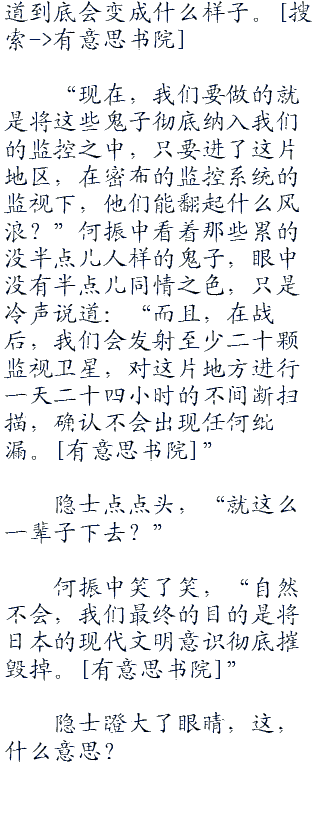 道到底会变成什么样子。[搜
索->有意思书院]
“现在，我们要做的就
是将这些鬼子彻底纳入我们
的监控之中，只要进了这片
地区，在密布的监控系统的
监视下，他们能翻起什么风
浪？”何振中看着那些累的
没半点儿人样的鬼子，眼中
没有半点儿同情之色，只是
冷声说道：“而且，在战
后，我们会发射至少二十颗
监视卫星，对这片地方进行
一天二十四小时的不间断扫
描，确认不会出现任何纰
漏。[有意思书院]”
隐士点点头，“就这么
一辈子下去？”
何振中笑了笑，“自然
不会，我们最终的目的是将
日本的现代文明意识彻底摧
毁掉。[有意思书院]”
隐士瞪大了眼睛，这，
什么意思？